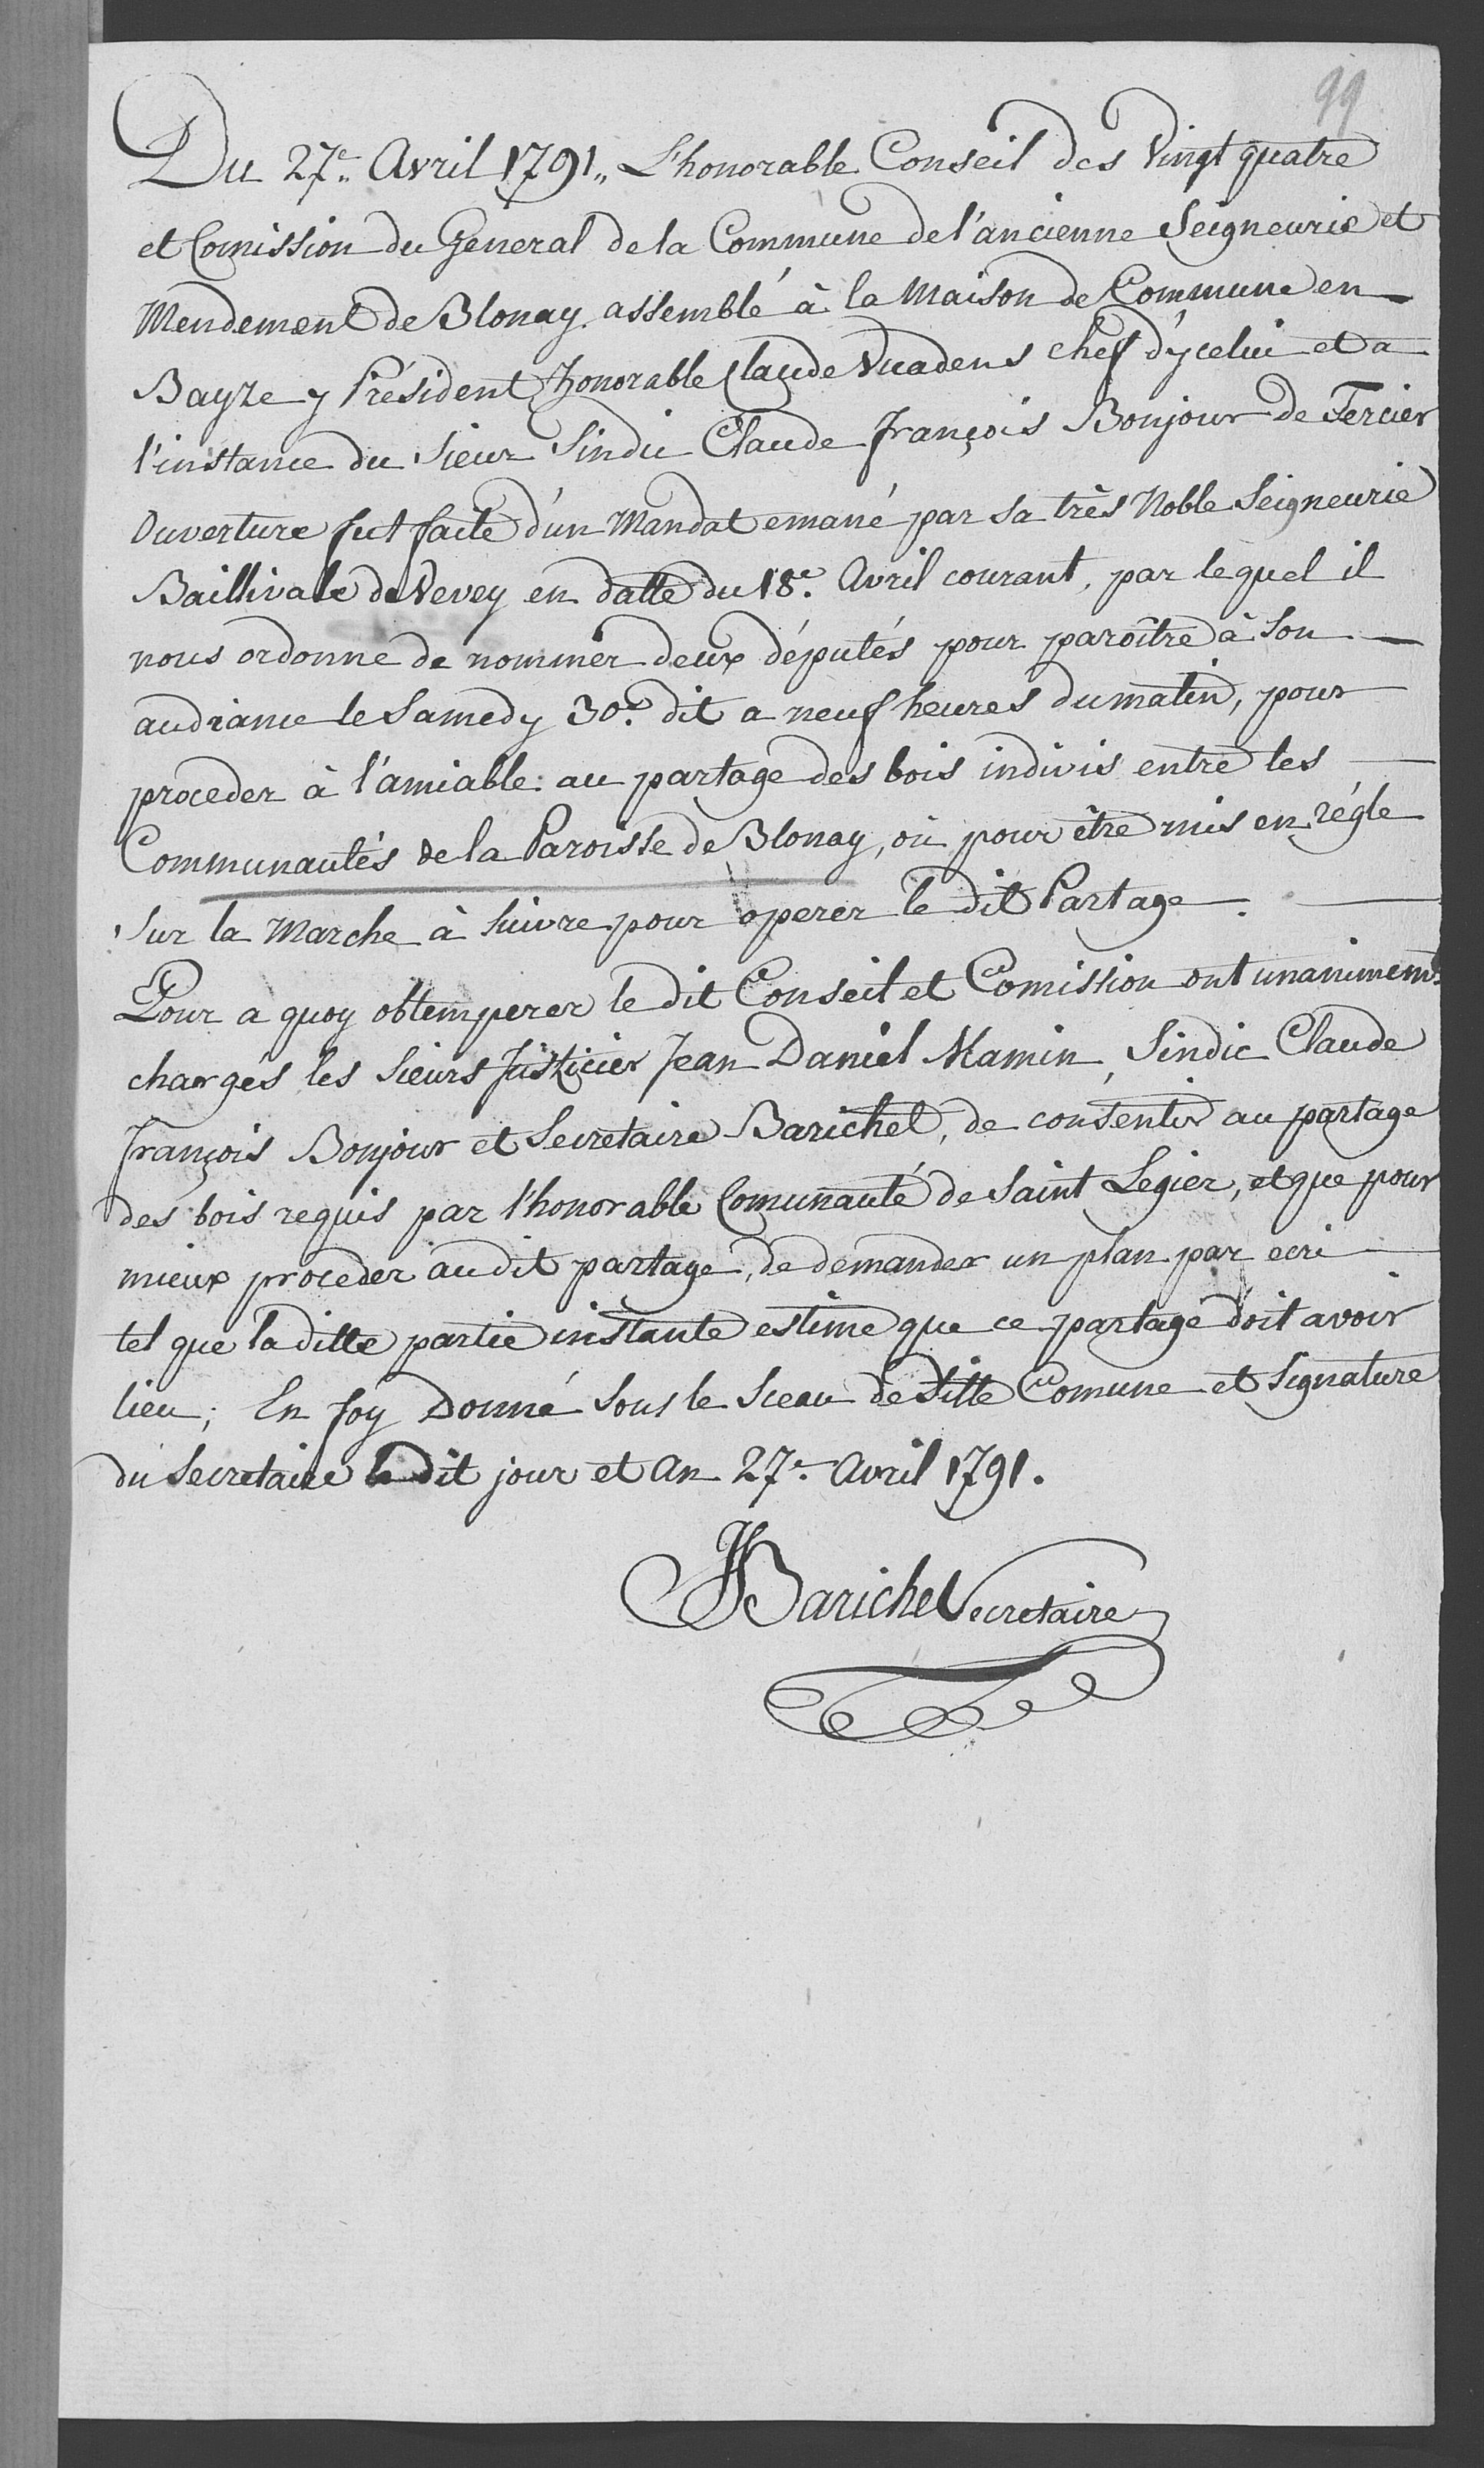 99
Du 27.e Avril 1791,, L'honorable Conseil des Vingt quatre
et Comission du General de la Commune de l'ancienne Seigneurie et
Mendement de Blonay assemblé à la Maison de Commune en
Bayze y Président honorable Claude Vuadens chef d'ycelui et a
l'instance du Sieur Sindic Claude François Bonjour de Tercier
Ouverture fut faite d'un Mandat emané par sa très Noble Seigneurie
Baillivale de Vevey en datte du 18.e Avril courant, par lequel il
nous ordonne de nommer deux députés pour paroître à son
audiance le Samedy 30.e dit a neuf heures du matin, pour
proceder à l'amiable au partage des bois indivis entre les
Communautés de la Paroisse de Blonay, ou pour être mis en régle
sur la Marche à suivre pour operer le dit Partage.
Pour a quoy obtemperer le dit Conseil et Comission ont unanimemt.
chargés les Sieurs Justicier Jean Daniel Mamin, Sindic Claude
François Bonjour et Secretaire Barichel, de consentir au partage
des bois requis par l'honorable Comunauté de Saint Legier, et que pour
mieux proceder audit partage, de demander un plan par ecri
tel que la ditte partie instante estime que ce partage doit avoir
lieu; En foy Donné sous le Sceau de ditte Comune et signature
du Secretaire le dit jour et an 27.e Avril 1791.
Barichel Secretaire